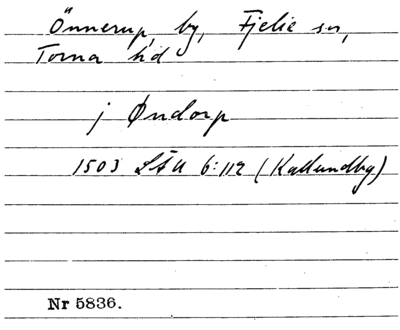 Önnerup, by, Fjelie sn,
Torna hd
j Øndorp
1503 LÅU 6:112 (Kallundby)
Nr 5836.